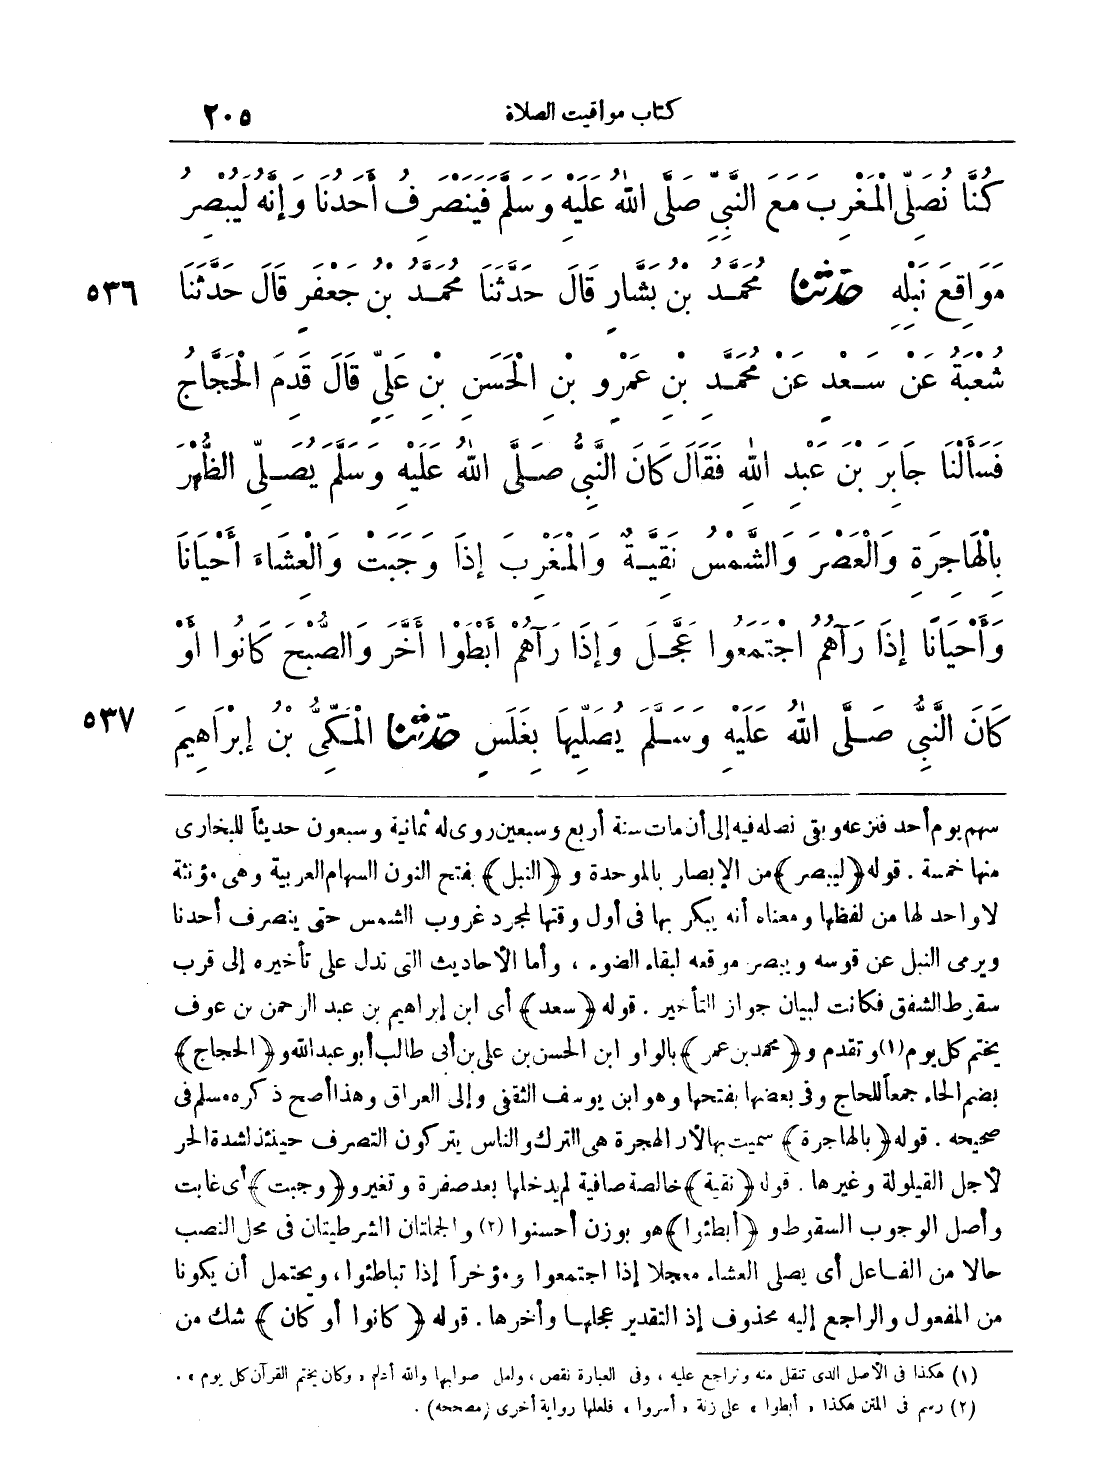 كتاب مواقيت الصلاة ٢٠٥
كُنَّا نُصَلِّى الْمَغْرِبَ مَعَ النَّبِىِّ صَلَّى اللهُ عَلَيْهِ وَسَلَّمَ فَيَنْصَرِفُ أَحَدُنَا وَإِنَّهُ لَيُبْصِرُ
مَوَاقِعَ نَبْلِهِ حَدَّثَنَا مُحَمَّدُ بْنُ بَشَّارٍ قَالَ حَدَّثَنَا مُحَمَّدُ بْنُ جَعْفَرٍ قَالَ حَدَّثَنَا ٥٣٦
شُعْبَةُ عَنْ سَعْدٍ عَنْ مُحَمَّدِ بْنِ عَمْرِو بْنِ الْحَسَنِ بْنِ عَلِىٍّ قَالَ قَدِمَ الْحَجَّاجُ
فَسَأَلْنَا جَابِرَ بْنَ عَبْدِ اللهِ فَقَالَ كَانَ النَّبِىُّ صَلَّى اللهُ عَلَيْهِ وَسَلَّمَ يُصَلِّى الظُّهْرَ
بِالْهَاجِرَةِ وَالْعَصْرَ وَالشَّمْسُ نَقِيَّةٌ وَالْمَغْرِبَ إِذَا وَجَبَتْ وَالْعِشَاءَ أَحْيَانًا
وَأَحْيَانًا إِذَا رَآهُمُ اجْتَمَعُوا عَجَّلَ وَإِذَا رَآهُمْ أَبْطَوْا أَخَّرَ وَالصُّبْحَ كَانُوا أَوْ
كَانَ النَّبِىُّ صَلَّى اللهُ عَلَيْهِ وَسَلَّمَ يُصَلِّيهَا بِغَلَسٍ حَدَّثَنَا الْمَكِّىُّ بْنُ إِبْرَاهِيمَ ٥٣٧
سهم يوم أحد فنزعه وبقى نصله فيه إلى أن مات سنة أربع وسبعين روى له ثمانية وسبعون حديثاً للبخارى
منها خمسة . قوله ﴿ليبصر﴾ من الإبصار بالموحدة و ﴿النبل﴾ بفتح النون السهام العربية وهى مؤنثة
لا واحد لها من لفظها ومعناه أنه يبكر بها فى أول وقتها لمجرد غروب الشمس حتى ينصرف أحدنا
ويرمى النبل عن قوسه ويبصر موقعه لبقاء الضوء ، وأما الأحاديث التى تدل على تأخيره إلى قرب
سقوط الشفق فكانت لبيان جواز التأخير . قوله ﴿سعد﴾ أى ابن إبراهيم بن عبد الرحمن بن عوف
يختم كل يوم (١) وتقدم و ﴿محمد بن عمر﴾ بالواو ابن الحسن بن على بن أبى طالب أبو عبد الله و ﴿الحجاج﴾
بضم الحاء جمعاً للحاج وفى بعضها بفتحها وهو ابن يوسف الثقفى وإلى العراق وهذا أصح ذكره مسلم فى
صحيحه . قوله ﴿بالهاجرة﴾ سميت بها لأن الهجرة هى الترك والناس يتركون التصرف حينئذ لشدة الحر
لأجل القيلولة وغيرها . قوله ﴿نقية﴾ خالصة صافية لم يدخلها بعد صفرة وتغير و ﴿وجبت﴾ أى غابت
وأصل الوجوب السقوط و ﴿أبطئوا﴾ هو بوزن أحسنوا (٢) والجملتان الشرطيتان فى محل النصب
حالا من الفاعل أى يصلى العشاء معجلا إذا اجتمعوا ومؤخراً إذا تباطئوا، ويحتمل أن يكونا
من المفعول والراجع إليه محذوف إذ التقدير عجلها وأخرها . قوله ﴿كانوا أو كان﴾ شك من
(١) هكذا فى الأصل الذى تنقل منه ونراجع عليه ، وفى العبارة نقص ، ولعل صوابها والله أعلم « وكان يختم القرآن كل يوم » .
(٢) رسم فى المتن هكذا « أبطوا » على زنة « أسروا » فلعلها رواية أخرى (مصححه) .